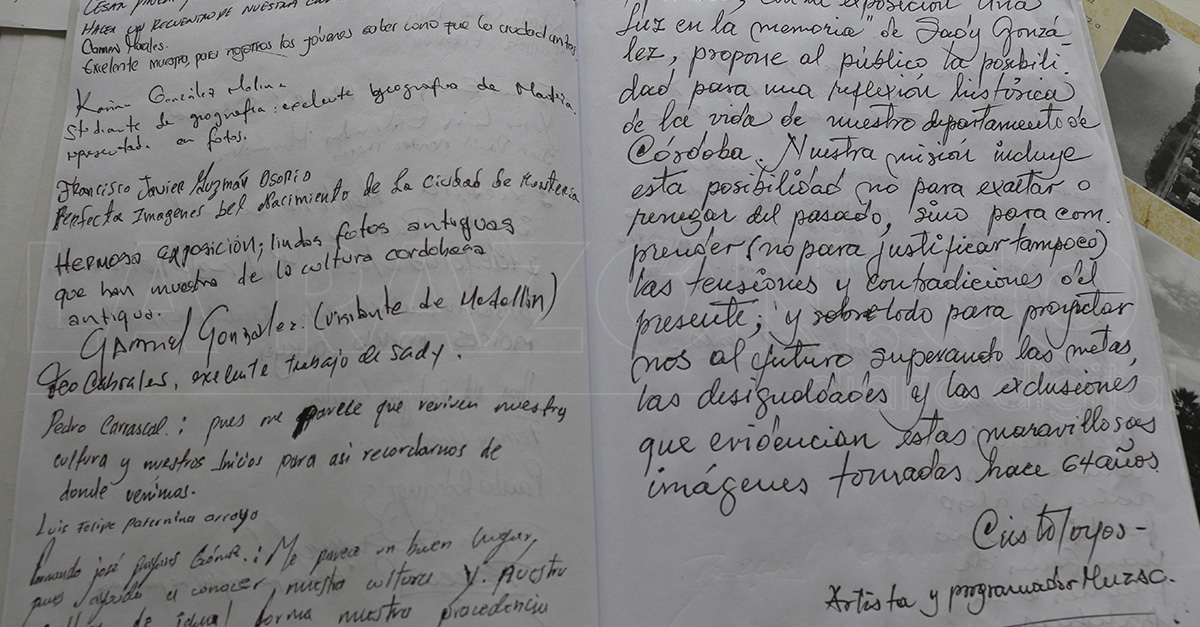 HACER UN RECUENTRO DE NUESTRA
Excelente muestra, para nosotros los jóvenes saber como que la ciudad antes
Karina González Molina
Studiante de geografia: exelente geografia de Monteria
representada en fotos.
Francisco Javier Guzmán Osorio
Perfecta Imagenes del Nacimiento de La Ciudad de Monteria
Hermosa exposición; lindas fotos antiguas
que han muestra de la cultura cordobesa
antigua.
Gabriel González. (visitante de Medellín)
Geo Cabrales, exelente trabajo de Sady.
Pedro Carrascal.: pues me parece que reviven nuestra
cultura y nuestros Inicios para asi recordarnos de
donde venimos.
Luis Felipe paternina arroyo
josé Gómez.: Me parece un buen lugar,
pues ayuda a conocer nuestra cultura y. Nuestra
de igual forma nuestra procedencia
con mi exposición "Una
Luz en la memoria" de Sady Gonzá-
lez, propone al público la posibili-
dad para una reflexión histórica
de la vida de nuestro departamento de
Córdoba. Nuestra misión incluye
esta posibilidad no para exaltar o
renegar del pasado, sino para com-
prender (no para justificar tampoco)
las tensiones y contradiciones del
presente; y sobretodo para proyectar
nos al futuro superando las metas,
las desigualdades y las exclusiones
que evidencian estas maravillosas
imágenes tomadas hace 64 años.
Cristo Hoyos-
Artista y programador Muzac.
LARAZÓN.CO
diario digital